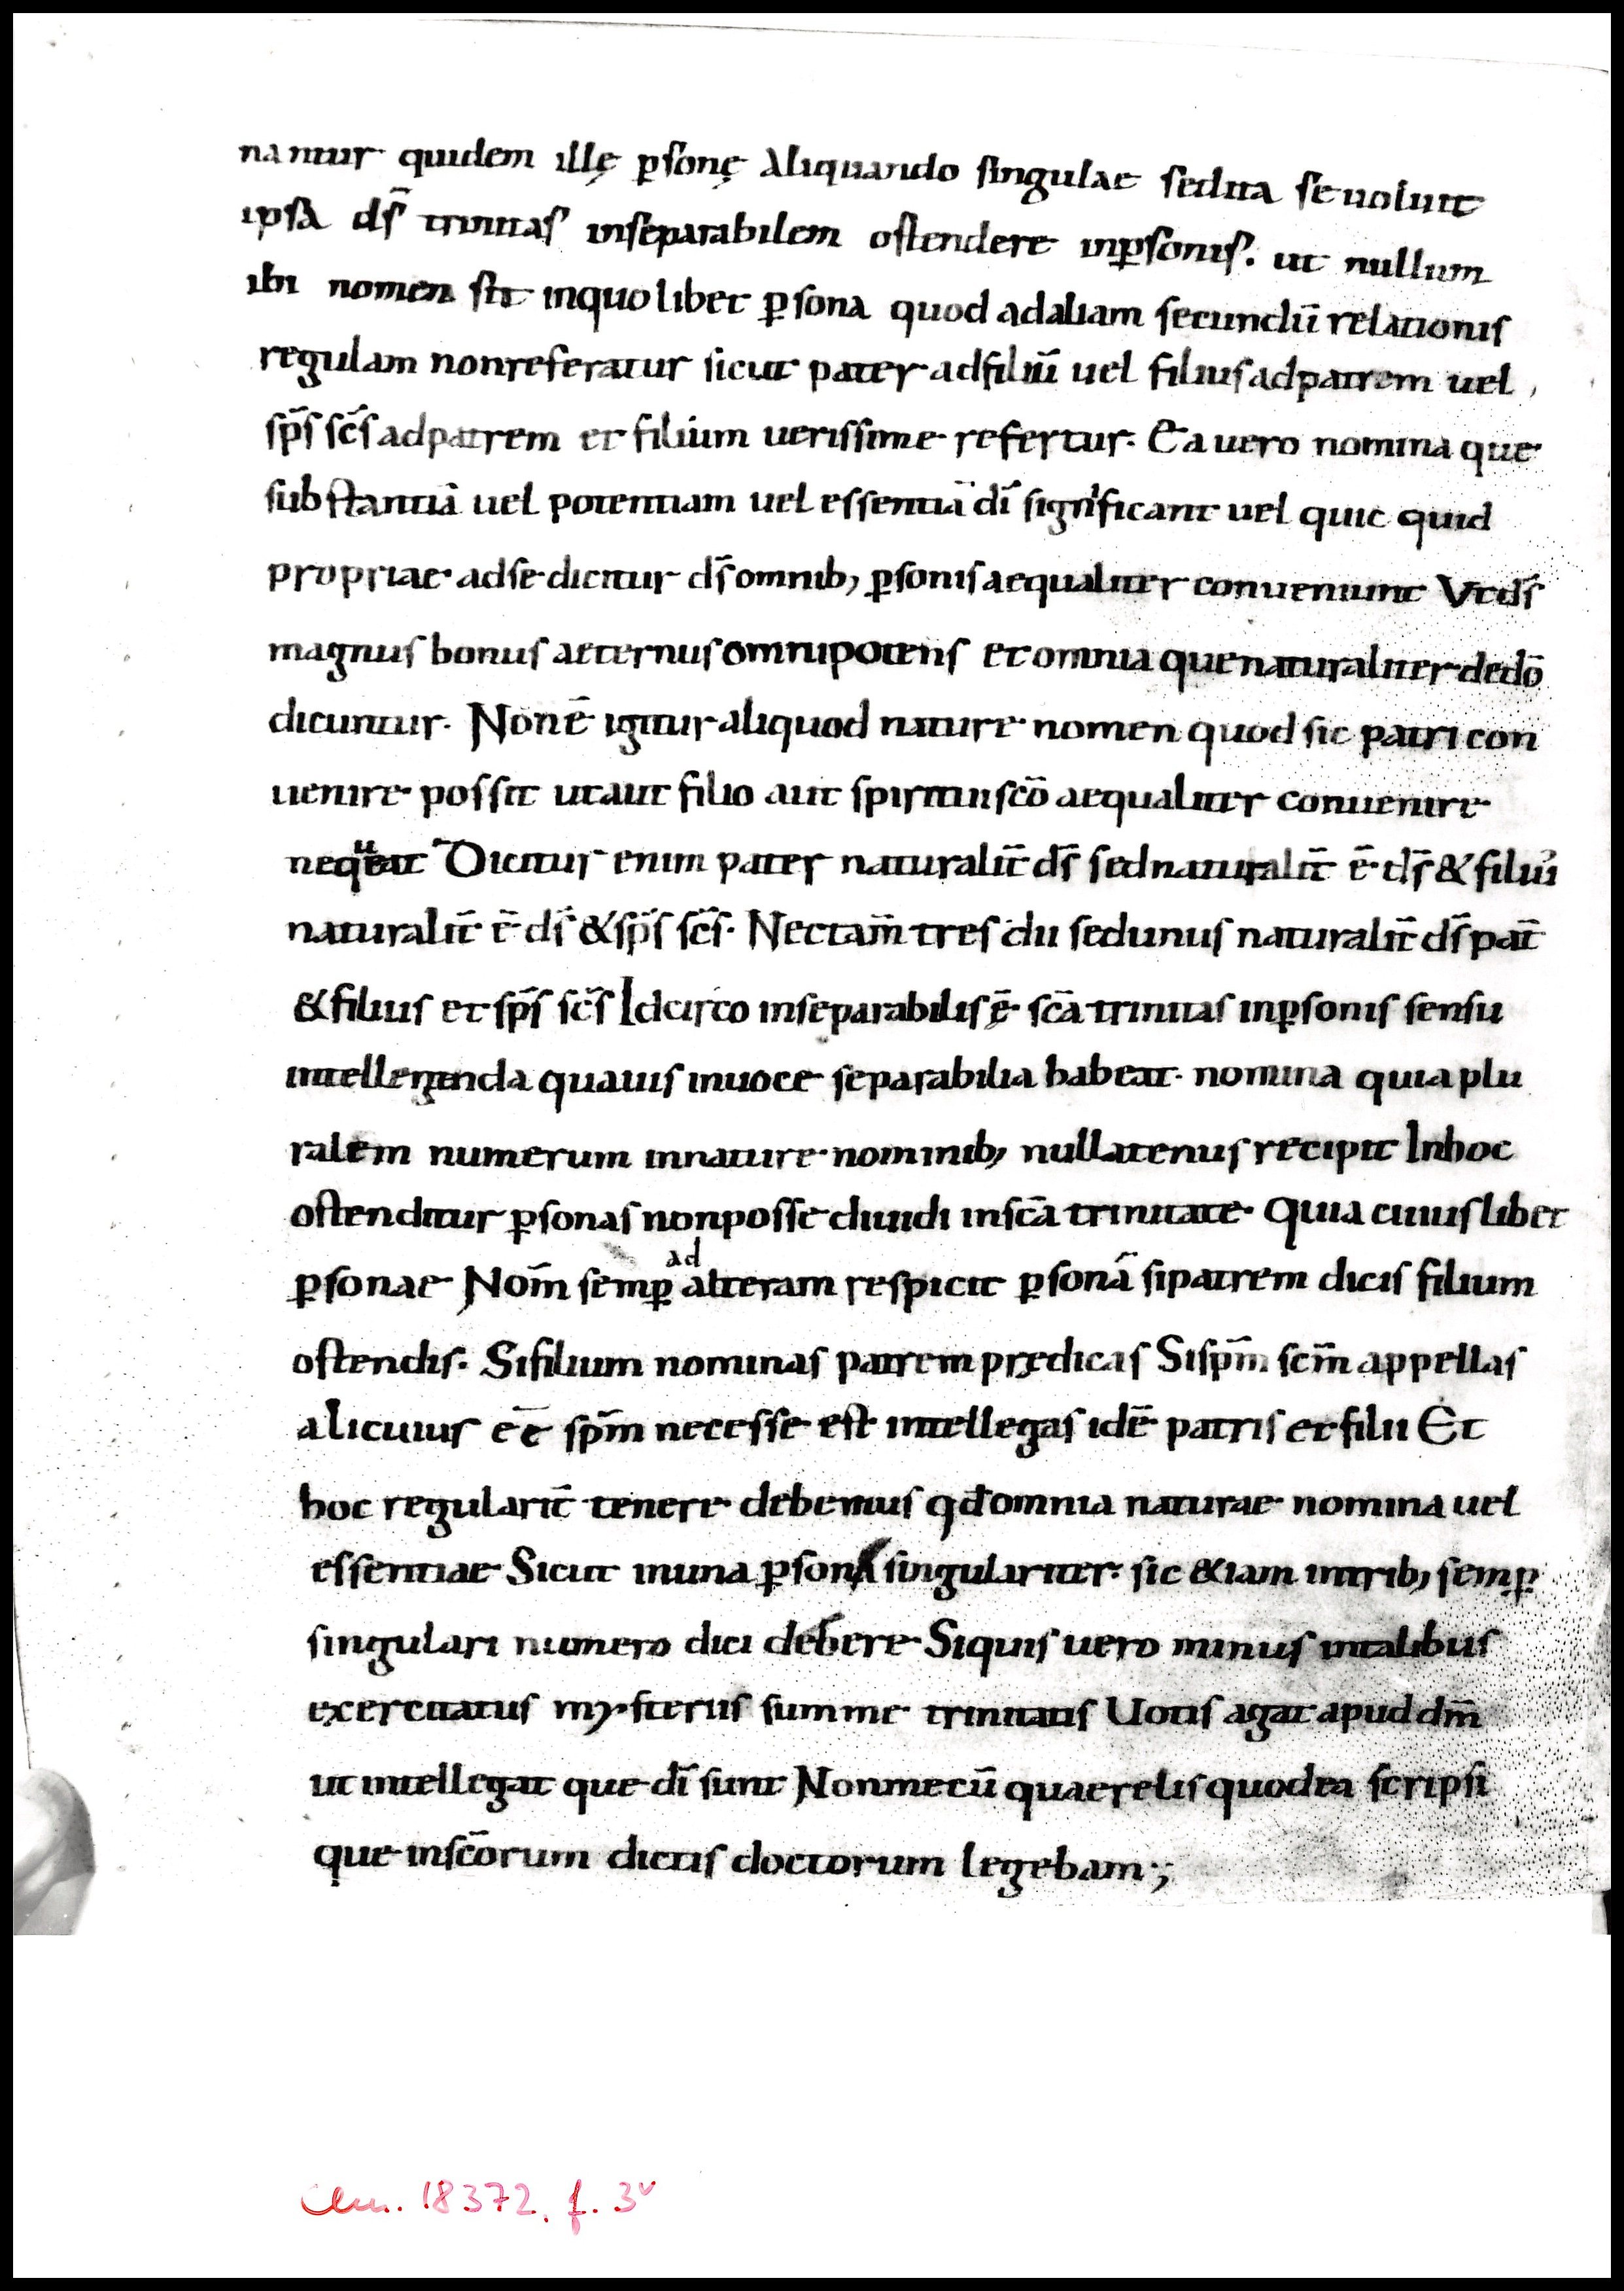 nantur quidem illę ꝑsonę aliquando singulae sed ita se uoluit
ipsa ds̄ trinitas inseparabilem ostendere inꝑsonis. ut nullum
ibi nomen sit inquolibet ꝑsona quod adaliam secundū relationis
regulam nonreferatur sicut pater adfiliū uel filius adpatrem uel
sp̄s sc̄s adpatrem et filium uerissime refertur. Ea uero nomina que
substantiā uel potentiam uel essentiā dī significant uel quic quid
propriae adse dicitur ds̄ omnib; ꝑsonis aequaliter conueniunt Vt ds̄
magnus bonus aeternus omnipotens et omnia que naturaliter dedō
dicuntur. Non ē igitur aliquod nature nomen quod sic patri con
uenire possit ut aut filio aut spiritui scō aequaliter conuenire
nequeat Dicitur enim pater naturalit̄ ds̄ sed naturalit̄ ē ds̄ & filius
naturalit̄ ē ds̄ & sp̄s sc̄s. Nec tam̄ tres dii sed unus naturalit̄ ds̄ pat̄
& filius et sp̄s sc̄s Idcirco inseparabilis ē scā trinitas inꝑsonis sensu
intellegenda quauis inuoce separabilia habeat nomina quia plu
ralem numerum innature nominib; nullatenus recipit Inhoc
ostenditur ꝑsonas nonposse diuidi inscā trinitate Quia cuiuslibet
ꝑsonae Nom̄ semꝑ ad alteram respicit ꝑsonā sipatrem dicis filium
ostendis. Sifilium nominas patrem prędicas Sispm̄ scm̄ appellas
alicuius eē spm̄ necesse est intellegas idē patris et filii Et
hoc regularit̄ tenere debemus qđ omnia naturae nomina uel
essentiae Sicut inuna ꝑsona singulariter sic &iam intrib; semꝑ
singulari numero dici debere Siquis uero minus intalibus
exercitatus mysteriis summe trinitatis Uotis agat apud dm̄
ut intellegat que dī sunt Nonmecū quaerelis quod ea scripsi
que inscōrum dictis doctorum legebam;
clm. 18372. f. 3v